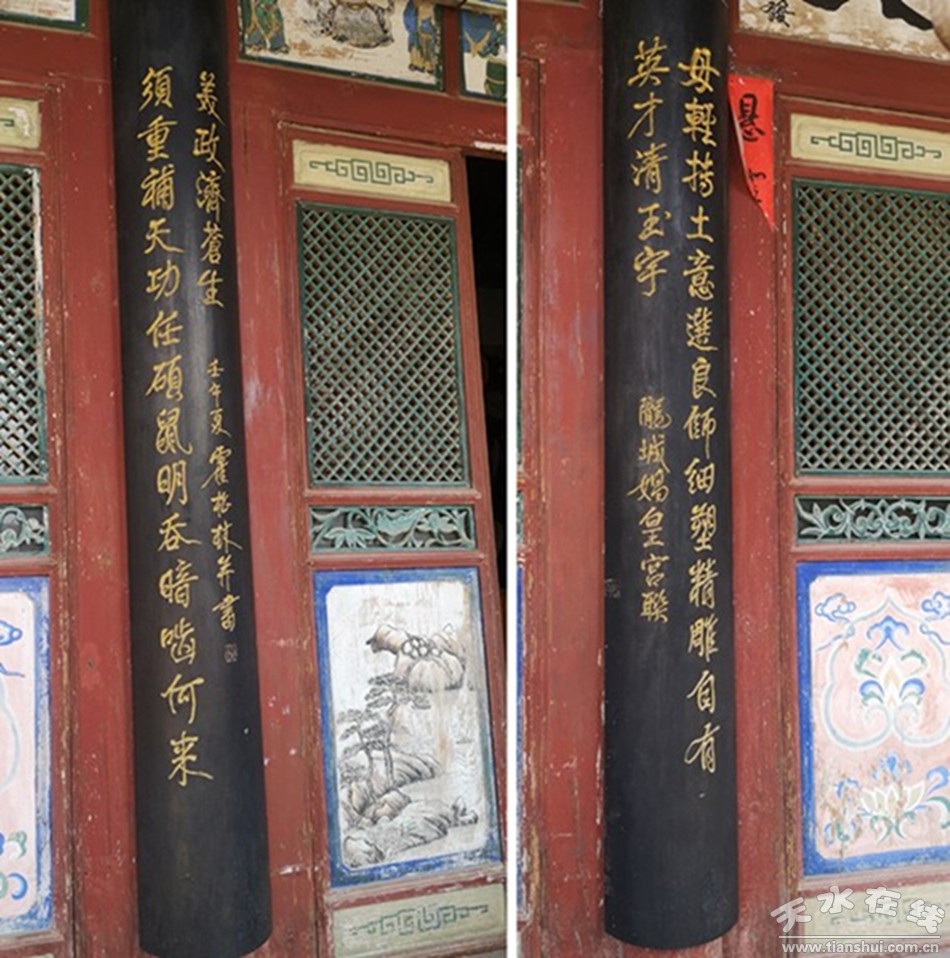 毋輕摶土意選良師細塑精雕自有
英才清玉宇
隴城媧皇宮聯
須重補天功任碩鼠明吞暗啮何来
美政濟蒼生
壬午夏 霍松林并書
發
天水在线
www.tianshui.com.cn